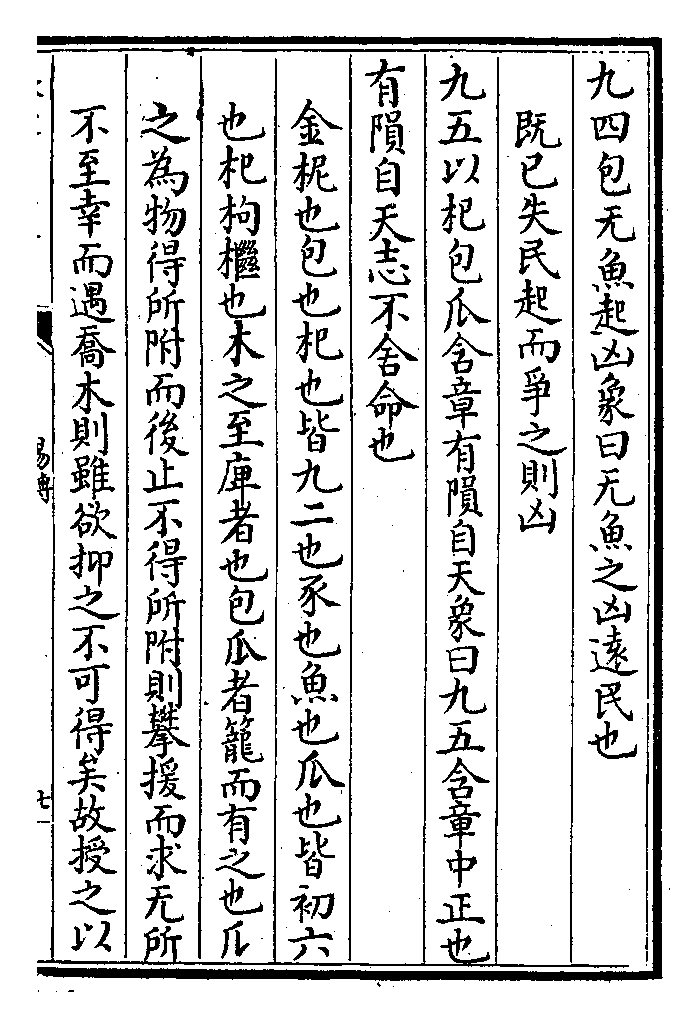 九四包无魚起凶象曰无魚之凶遠民也
既已失民起而爭之則凶
九五以杞包瓜含章有隕自天象曰九五含章中正也
有隕自天志不舍命也
金柅也包也杞也皆九二也豕也魚也瓜也皆初六
也杞枸檵也木之至庳者也包瓜者籠而有之也瓜
之為物得所附而後止不得所附則攀援而求无所
不至幸而遇喬木則雖欲抑之不可得矣故授之以
易傳
七